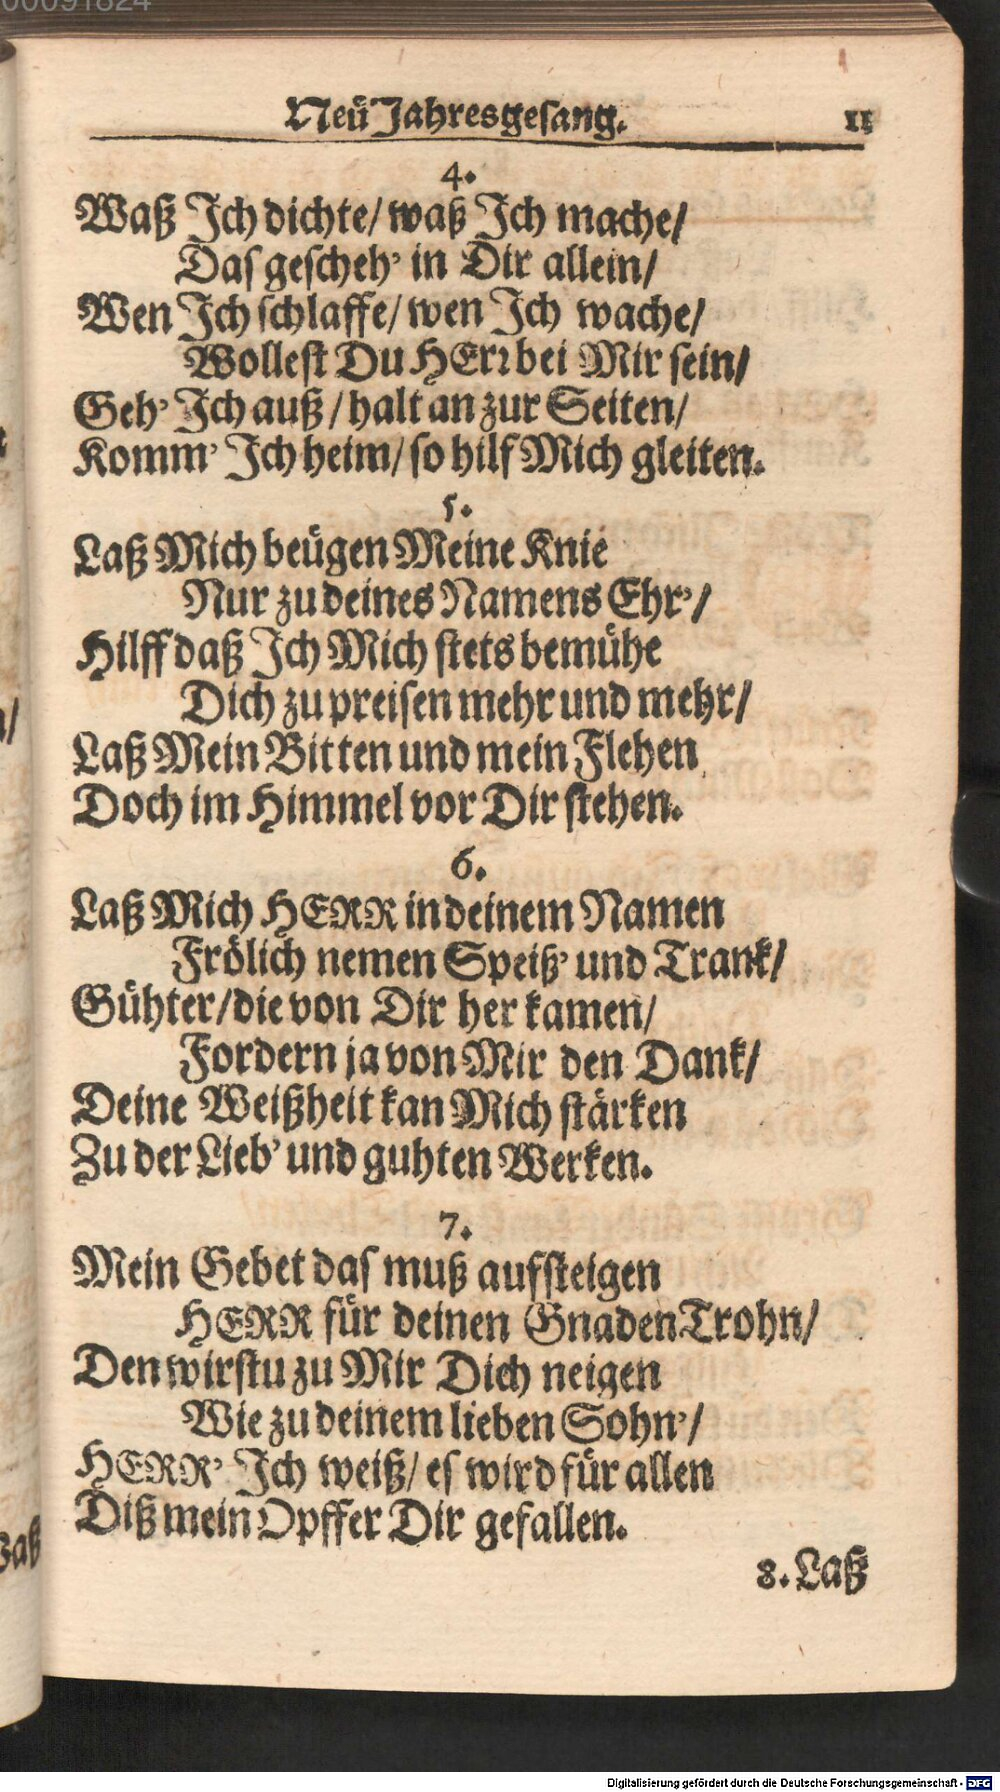 00091824
Neü Jahresgesang. 11
4.
Waß Ich dichte/ waß Ich mache/
Das gescheh' in Dir allein/
Wen Ich schlaffe/ wen Ich wache/
Wollest Du HErr bei Mir sein/
Geh' Ich auß/ halt an zur Seiten/
Komm' Ich heim/ so hilf Mich gleiten.
5.
Laß Mich beügen Meine Knie
Nur zu deines Namens Ehr'/
Hilff daß Ich Mich stets bemühe
Dich zu preisen mehr und mehr/
Laß Mein Bitten und mein Flehen
Doch im Himmel vor Dir stehen.
6.
Laß Mich HERR in deinem Namen
Frölich nemen Speiß' und Trank/
Gühter/ die von Dir her kamen/
Fordern ja von Mir den Dank/
Deine Weißheit kan Mich stärken
Zu der Lieb' und guhten Werken.
7.
Mein Gebet das muß aufsteigen
HERR für deinen Gnaden Trohn/
Den wirstu zu Mir Dich neigen
Wie zu deinem lieben Sohn'/
HERR' Ich weiß/ es wird für allen
Diß mein Opffer Dir gefallen.
8. Laß
Digitalisierung gefördert durch die Deutsche Forschungsgemeinschaft - DFG